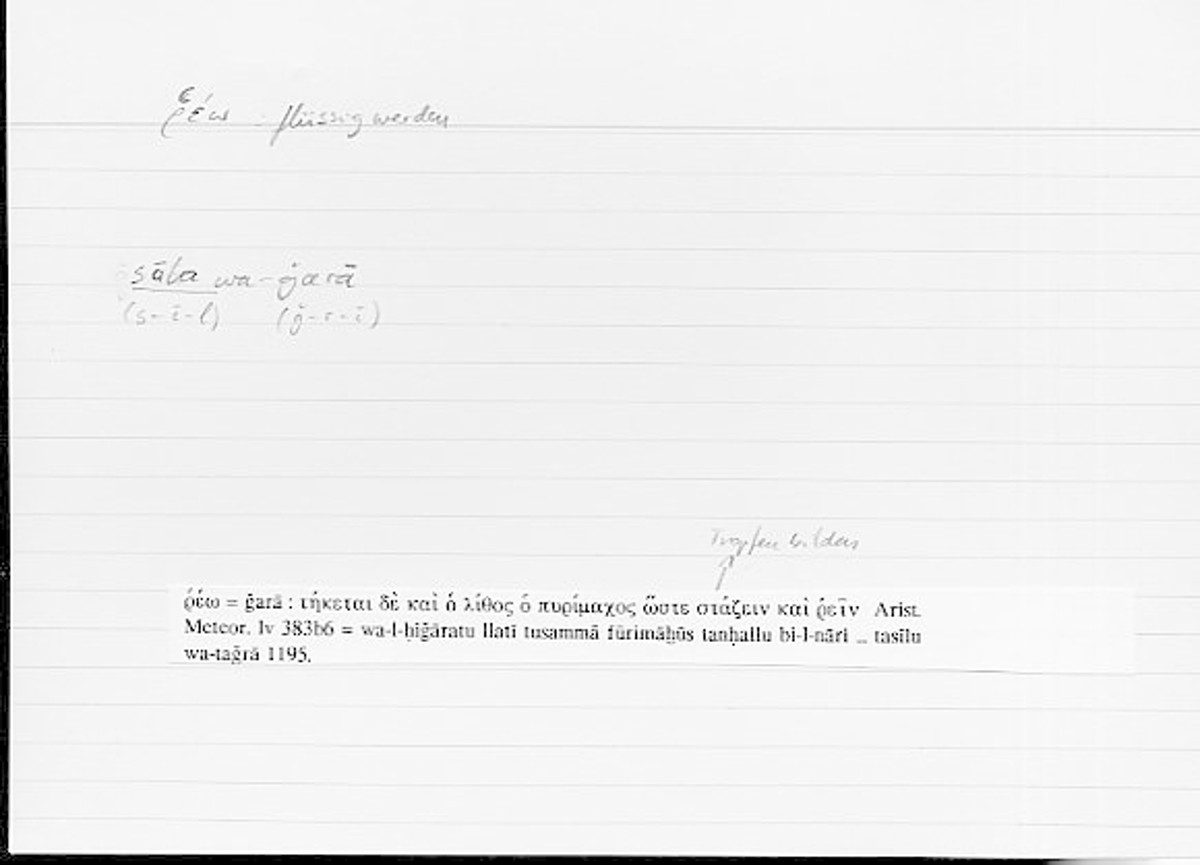 ῥέω : flüssig werden
sāla wa-ǧarā
(s-ī-l) (ǧ-r-ī)
Tropfen bilden
ῥέω = ǧarā : τήκεται δὲ καὶ ὁ λίθος ὁ πυρίμαχος ὥστε στάζειν καὶ ῥεῖν Arist.
Meteor. Iv 383b6 = wa-l-ḥiǧāratu llatī tusammā fūrimāḫūs tanḥallu bi-l-nāri _ tasīlu
wa-taǧrā 1195.